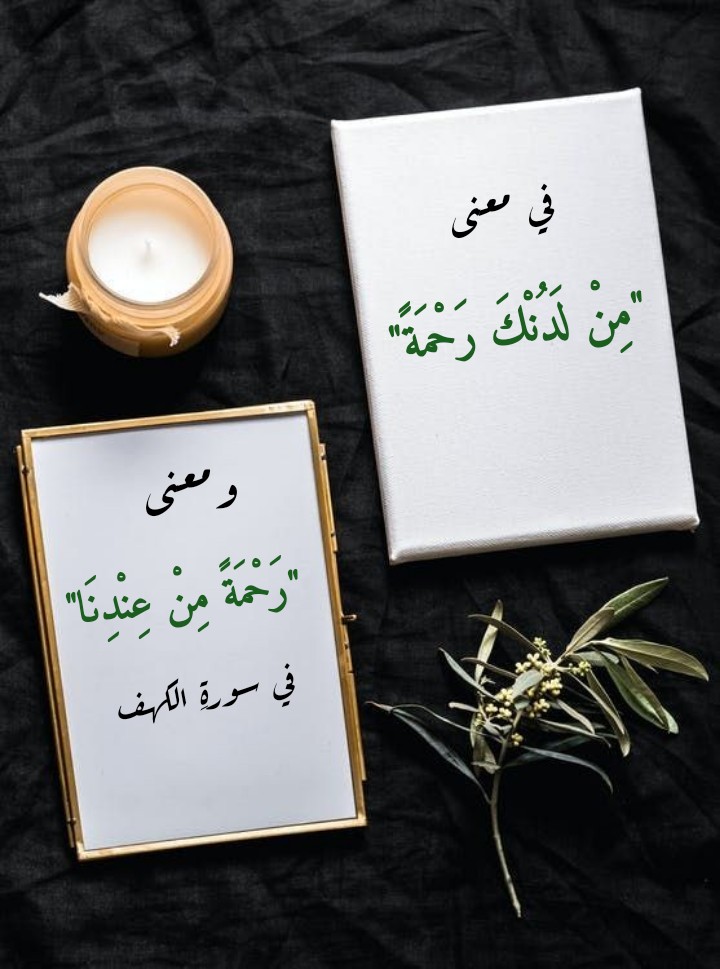 في معنى
"مِنْ لَدُنْكَ رَحْمَةً"
و معنى
"رَحْمَةً مِنْ عِنْدِنَا"
في سورةِ الكهف